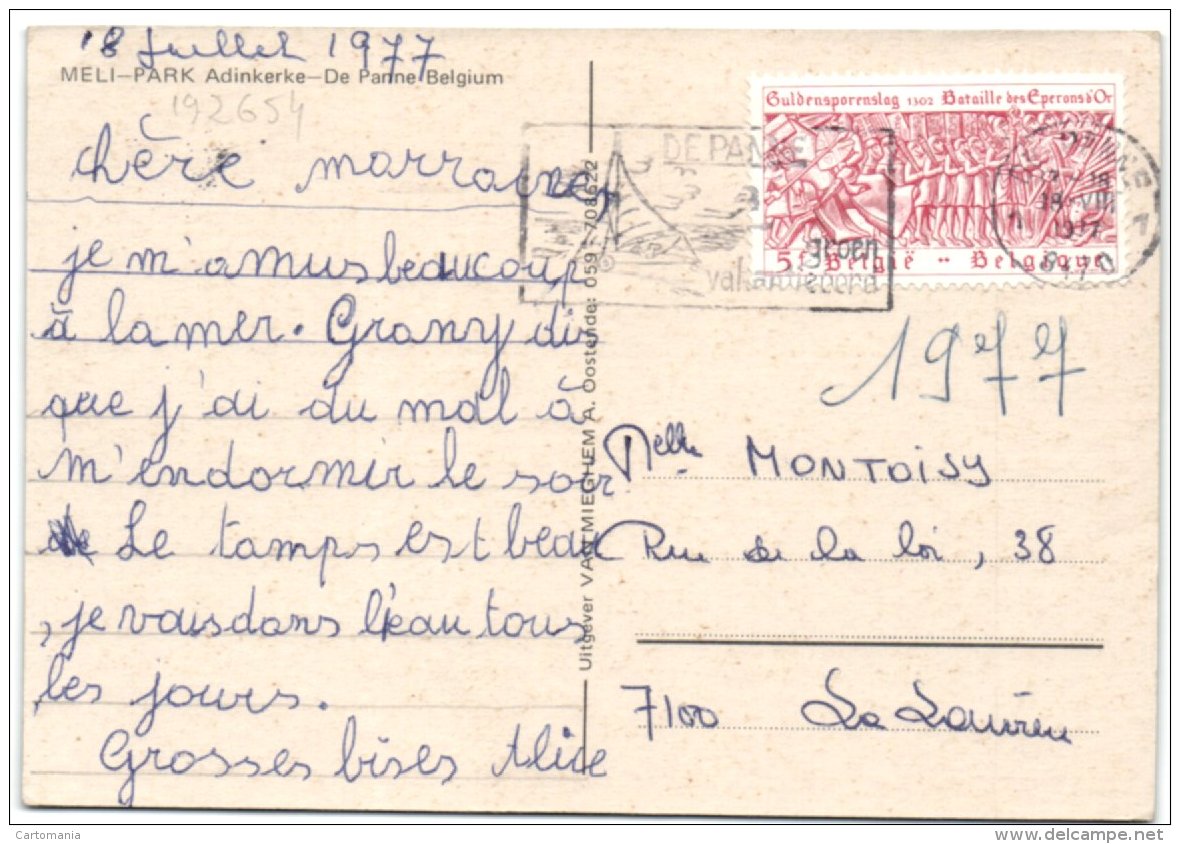 18 Juillet 1977
MELI-PARK Adinkerke-De Panne Belgium
192654
chère marraine,
je m'amus beaucoup
à la mer. Grany di
que j'ai du mal à
m'endormir le soir
Le tamps est beau
, je vais dans l'eau tous
les jours.
Grosses bises Alice
Uitgever VAN MIEGHEM A. Oostende: 059 - 708622
DE PANNE
groen
vakantieoord
Guldensporenslag 1302 Bataille des Eperons d'Or
5F België - Belgique
1977
Melle MONTOISY
Rue de la loi, 38
7100 La Louvière
Cartomania
www.delcampe.net